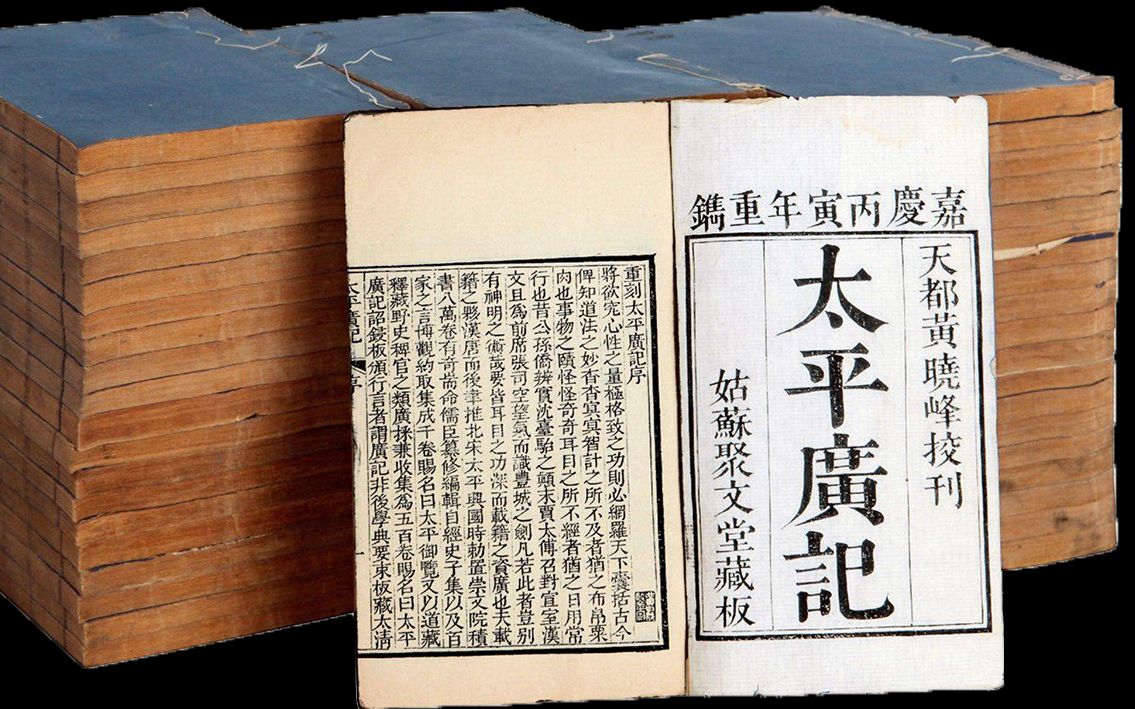 嘉慶丙寅年重鐫
天都黃曉峰挍刊
太平廣記
姑蘇聚文堂藏板
重刻太平廣記序
將欲完心性之量極格致之功則必網羅天下囊括古今
俾知道法之妙杳杳冥冥智計之所不及者猶之布帛粟
肉也事物之賾怪怪奇奇耳目之所不經者猶之日用常
行也昔公孫僑辨實沈臺駘之顛末賈太傅召對宣室漢
文且為前席張司空望氣而識豐城之劍凡若此者豈别
有神明之術哉要皆耳目之功深而載籍之資廣也夫載
籍之夥漢唐而後聿推北宋太平興國時勅置崇文院積
書八萬卷有奇耑命儒臣纂修編輯自經史子集以及百
家之言博觀約取集成千卷賜名曰太平御覽又以道藏
釋藏野史稗官之類廣採兼收集為五百卷賜名曰太平
廣記詔鋟板頒行言者謂廣記非後學典要束板藏太清
太平廣記 序